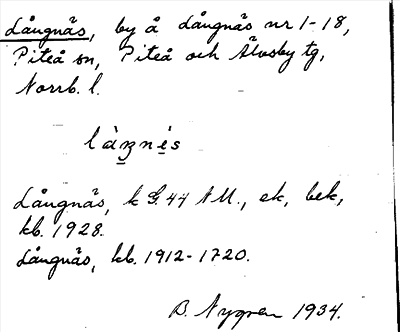 Långnäs, by å Långnäs nr 1-18,
Piteå sn, Piteå och Älvsby tg,
Norrb. l.
Långnäs, k G. 44 AU., ek, bek,
kb. 1928.
Långnäs, kb. 1912-1720.
B. Nygren 1934.